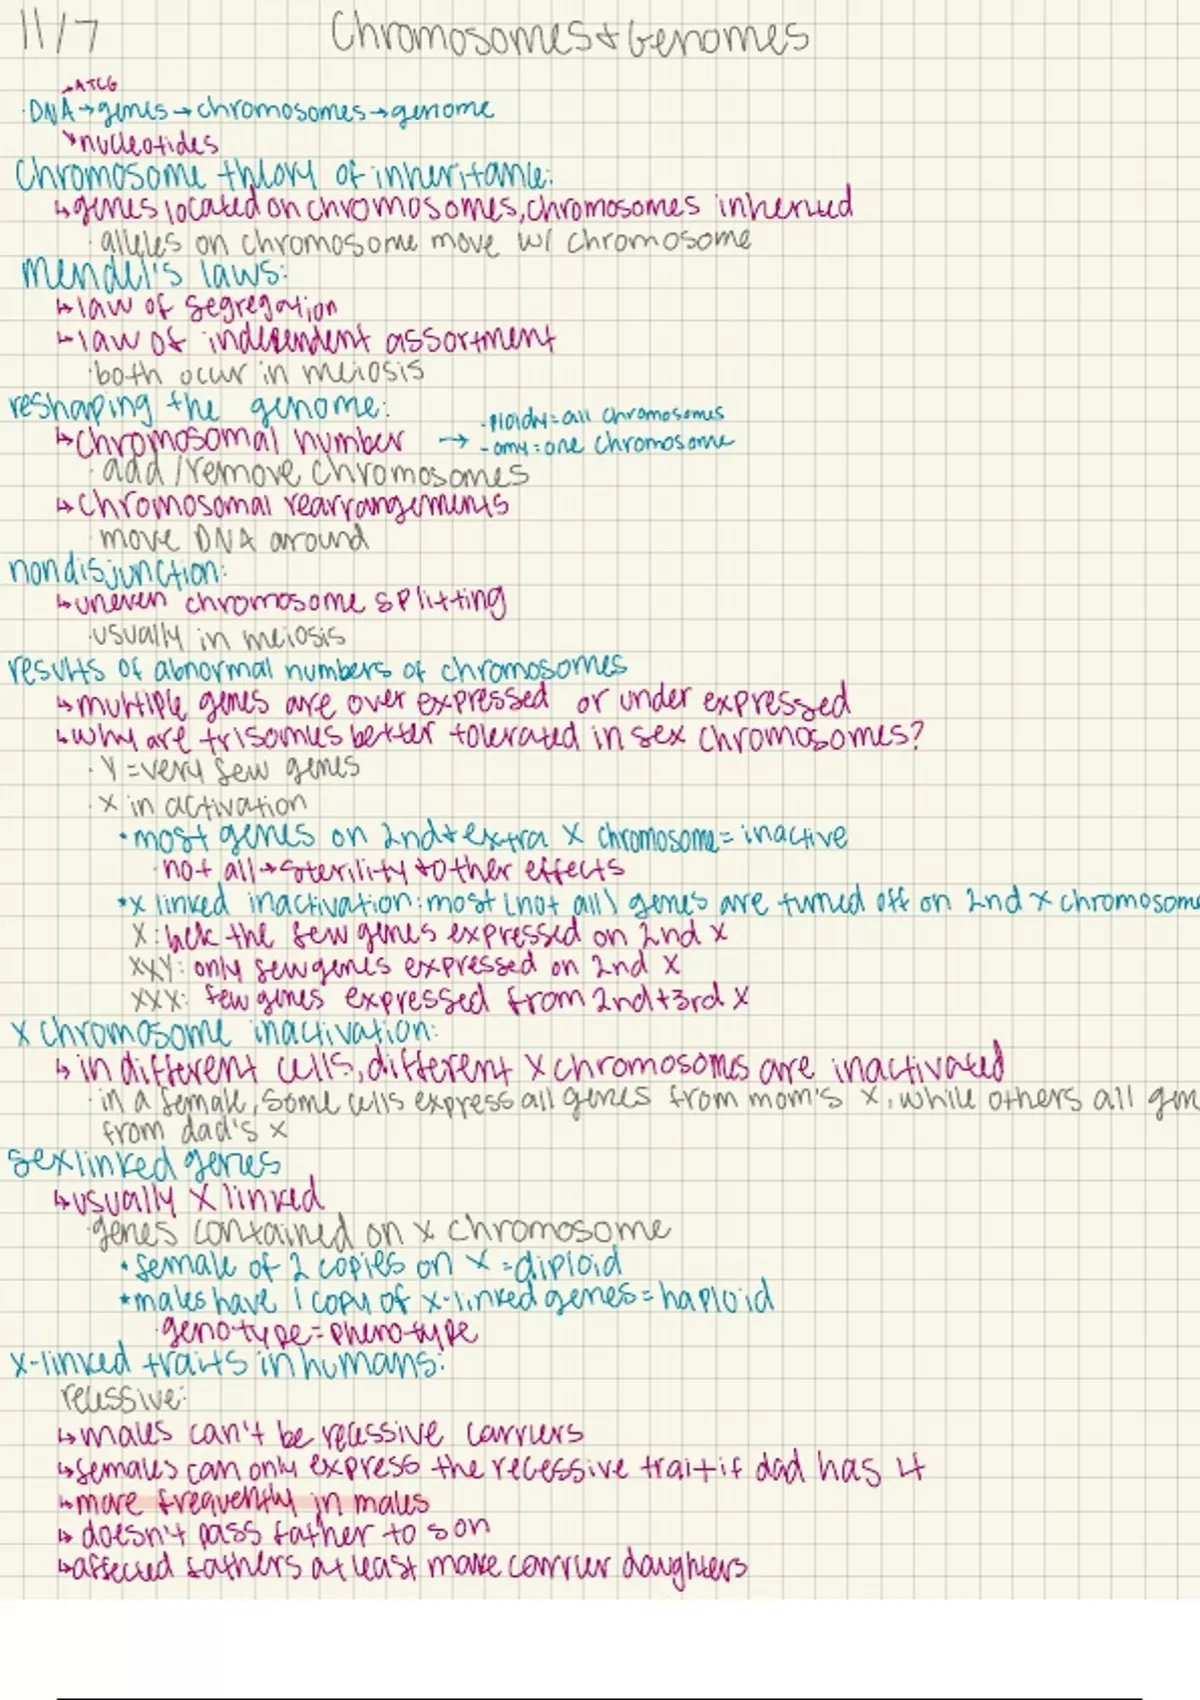 11/7 Chromosomes & Genomes
→ATCG
·DNA→genes→chromosomes→genome
↘nucleotides
Chromosome theory of inheritance:
↳genes located on chromosomes, chromosomes inherited
·alleles on chromosome move w/ chromosome
mendel's laws:
↳law of segregation
↳law of independent assortment
·both occur in meiosis
reshaping the genome:
↳chromosomal number → -ploidy=all chromosomes
-omy=one chromosome
·add/remove chromosomes
↳chromosomal rearrangements
·move DNA around
nondisjunction:
↳uneven chromosome splitting
·usually in meiosis
results of abnormal numbers of chromosomes
↳multiple genes are over expressed or under expressed
↳why are trisomies better tolerated in sex chromosomes?
·Y=very few genes
·X in activation
•most genes on 2nd+extra X chromosome=inactive
·not all→sterility+other effects
•x linked inactivation:most (not all) genes are turned off on 2nd x chromosome
X: lack the few genes expressed on 2nd x
XXY: only few genes expressed on 2nd X
XXX: few genes expressed from 2nd+3rd X
x chromosome inactivation:
↳in different cells, different x chromosomes are inactivated
·in a female, some cells express all genes from mom's x, while others all gen
from dad's x
sex linked genes
↳usually X linked
·genes contained on x chromosome
•female of 2 copies on X=diploid
•males have 1 copy of x-linked genes=haploid
·genotype=phenotype
x-linked traits in humans:
recessive:
↳males can't be recessive carriers
↳females can only express the recessive trait if dad has it
↳more frequently in males
↳doesn't pass father to son
↳affected fathers at least make carrier daughters